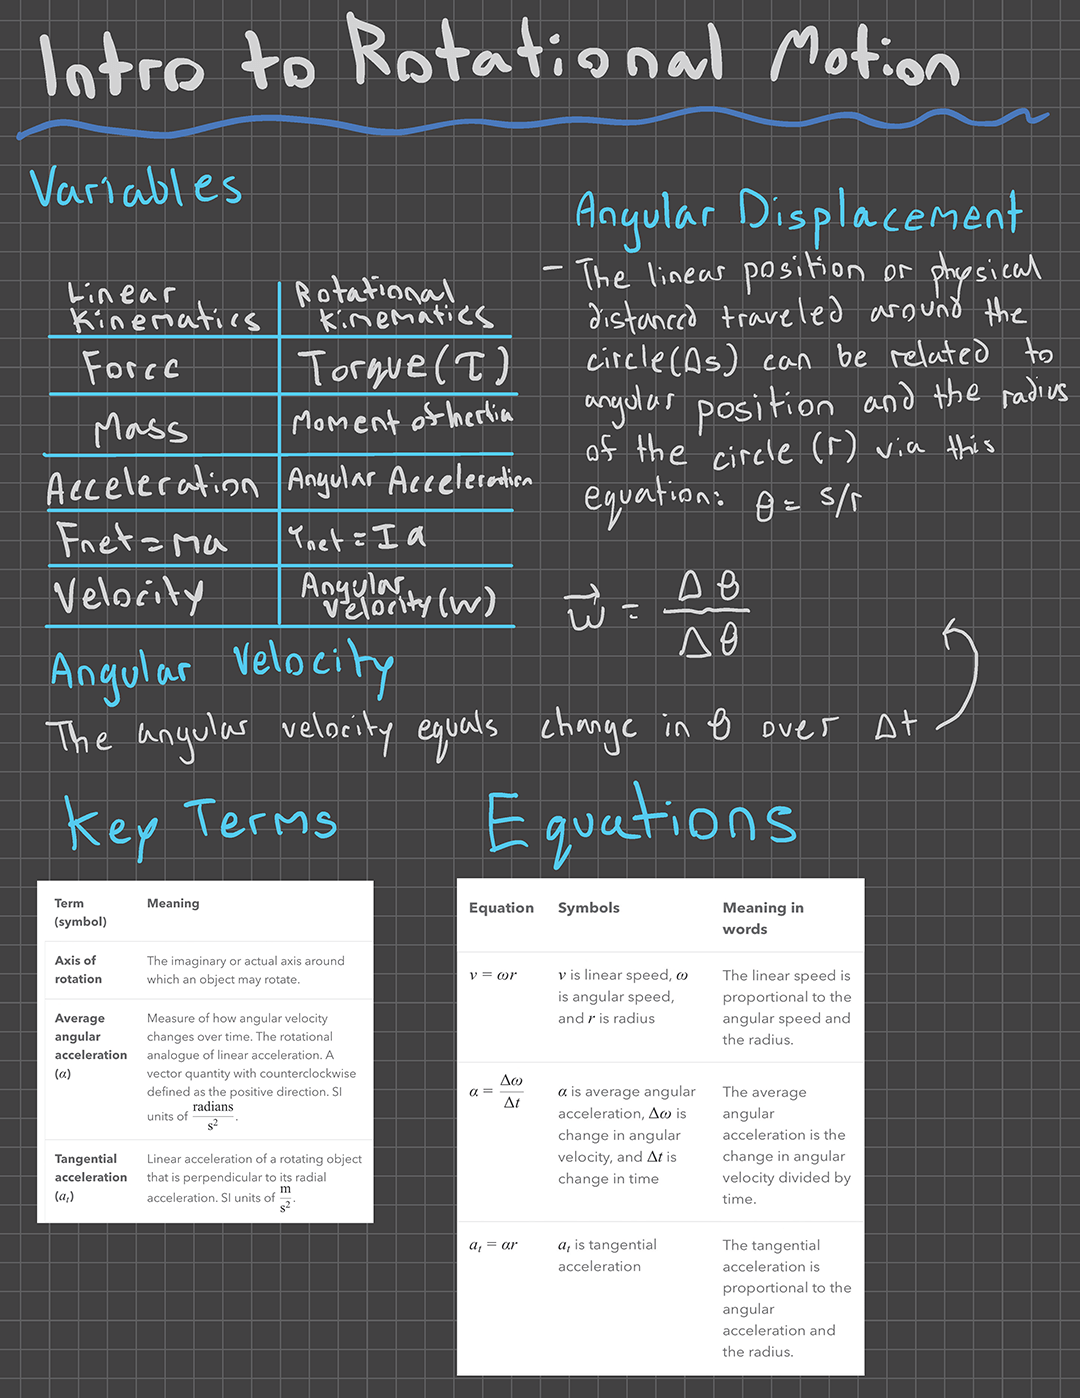 Intro to Rotational Motion
Variables
Linear Kinematics | Rotational Kinematics
Force | Torque (τ)
Mass | Moment of Inertia
Acceleration | Angular Acceleration
Fnet = ma | τnet = I a
Velocity | Angular velocity (w)
Angular Displacement
- The linear position or physical
distanced traveled around the
circle (Δs) can be related to
angular position and the radius
of the circle (r) via this
equation: θ = s/r
w⃗ = Δθ / Δθ
Angular Velocity
The angular velocity equals change in θ over Δt
Key Terms
Term (symbol) | Meaning
Axis of rotation | The imaginary or actual axis around
which an object may rotate.
Average angular acceleration (α) | Measure of how angular velocity
changes over time. The rotational
analogue of linear acceleration. A
vector quantity with counterclockwise
defined as the positive direction. SI
units of radians/s².
Tangential acceleration (aₜ) | Linear acceleration of a rotating object
that is perpendicular to its radial
acceleration. SI units of m/s².
Equations
Equation | Symbols | Meaning in words
v = ωr | v is linear speed, ω is angular speed, and r is radius | The linear speed is proportional to the angular speed and the radius.
α = Δω/Δt | α is average angular acceleration, Δω is change in angular velocity, and Δt is change in time | The average angular acceleration is the change in angular velocity divided by time.
aₜ = αr | aₜ is tangential acceleration | The tangential acceleration is proportional to the angular acceleration and the radius.